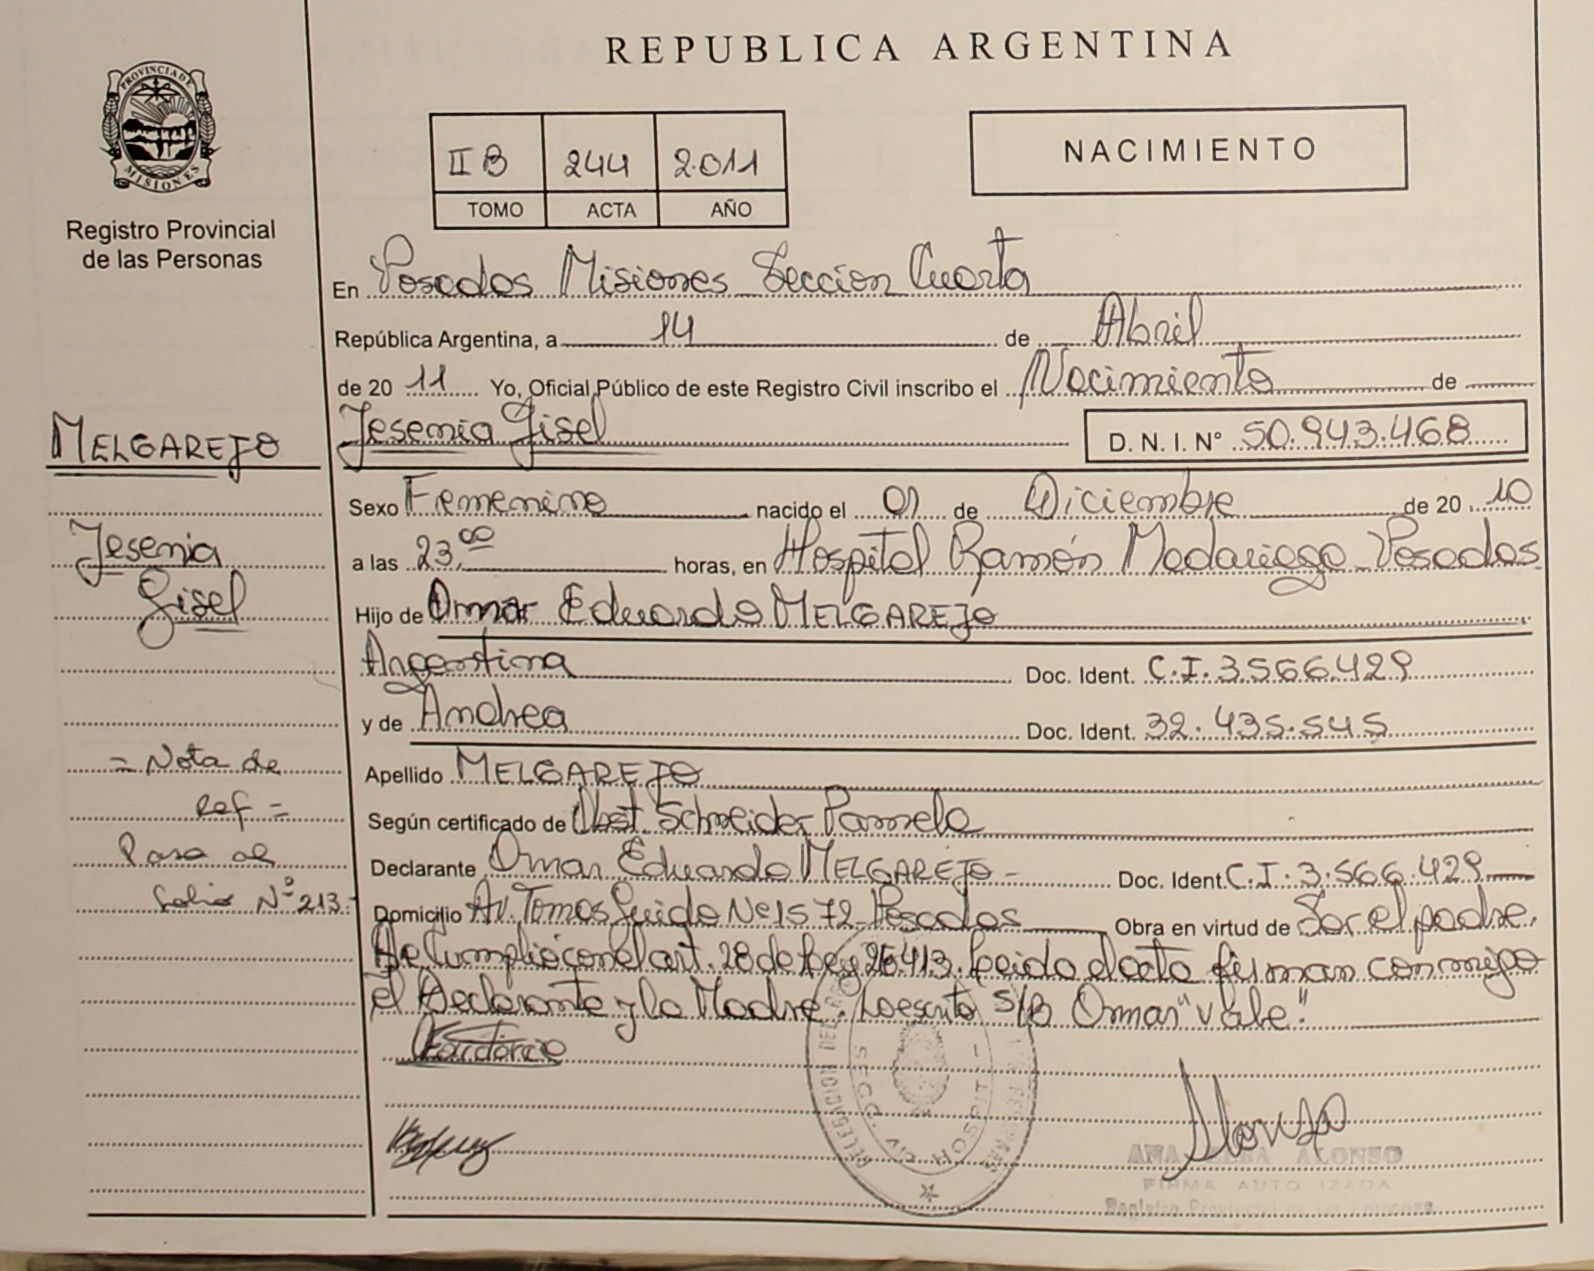 REPUBLICA ARGENTINA
PROVINCIA DE MISIONES
Registro Provincial
de las Personas
II B 244 2.011
TOMO ACTA AÑO
NACIMIENTO
En Posadas Misiones Seccion Cuarta
República Argentina, a 14 de Abril
de 20 11 Yo, Oficial Público de este Registro Civil inscribo el Nacimiento de
Jesenia Gisel D. N. I. Nº 50.943.468
MELGAREJO
Jesenia
Gisel
= Nota de
Ref =
Pasa al
folio Nº 213.
Sexo Femenino nacido el 01 de Diciembre de 20 10
a las 23,00 horas, en Hospital Ramón Madariaga - Posadas
Hijo de Omar Eduardo MELGAREJO
Argentina Doc. Ident. C.I. 3.566.429
y de Andrea Doc. Ident. 32.435.545
Apellido MELGAREJO
Según certificado de Obst. Schneider Pamela
Declarante Omar Eduardo MELGAREJO - Doc. Ident. C.I. 3.566.429
Domicilio Av. Tomas Guido Nº 1572 Posadas Obra en virtud de Ser el padre.
Se Cumplio con el art. 28 de Ley 26.413. Leida el acta firman conmigo
el Declarante y la Madre. Lo escrito S/B Omar "Vale".
DELEGACION DEL
SECC. 4ta
HOSPITAL
ALONSO
FIRMA AUTORIZADA
Registro Provincial de las Personas